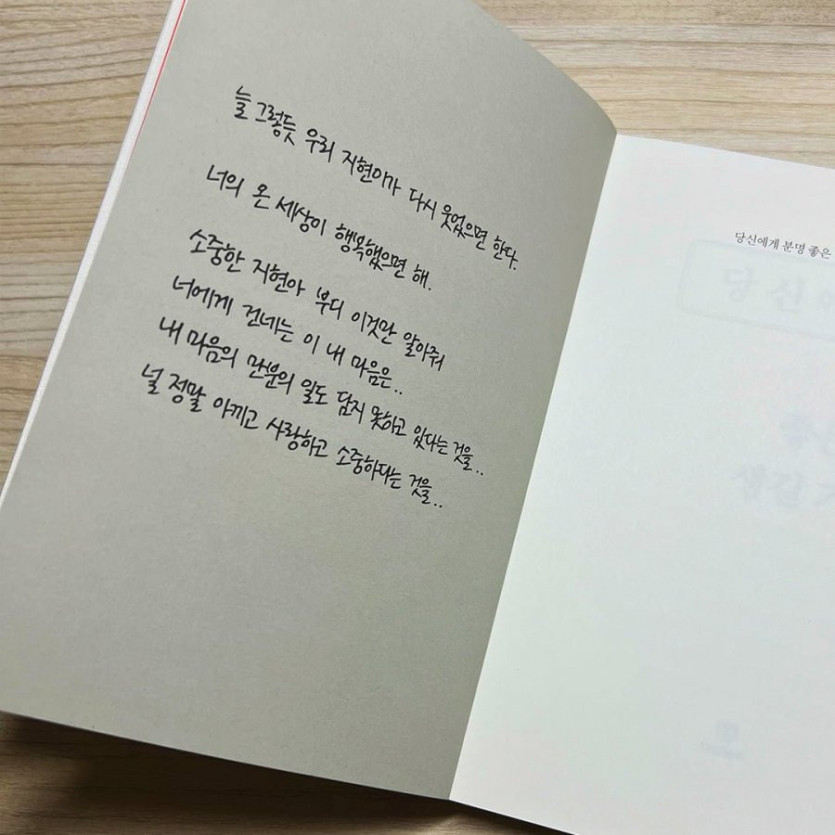 늘 그렇듯 우리 지현이가 다시 웃었으면 한다.
너의 온 세상이 행복했으면 해.
소중한 지현아 부디 이것만 알아줘
너에게 건네는 이 내 마음은..
내 마음의 만분의 일도 담지 못하고 있다는 것을..
널 정말 아끼고 사랑하고 소중하다는 것을..
당신에게 분명 좋은
당신
생길